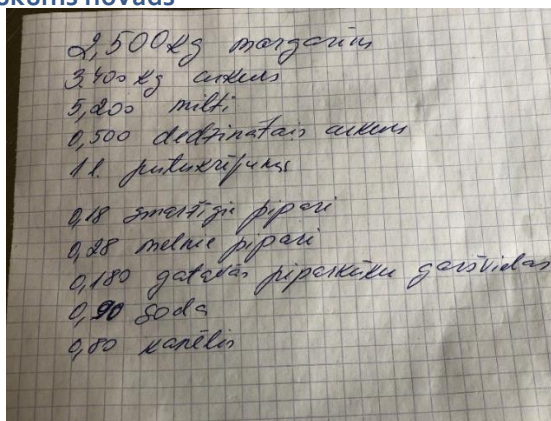 okums novads
2,500 kg margarīns
3.400 kg cukurs
5,200 milti
0,500 dedzinātais cukurs
1 l. putukrējums
0,18 smaržīgie pipari
0,28 melnie pipari
0,180 gatavas piparkūku garšvielas
0,90 soda
0,80 kanēlis